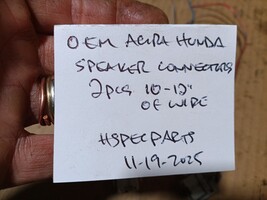 OEM ACURA HONDA
SPEAKER CONNECTORS
2pcs 10-12"
OF WIRE
HSPECPARTS
11-19-2025